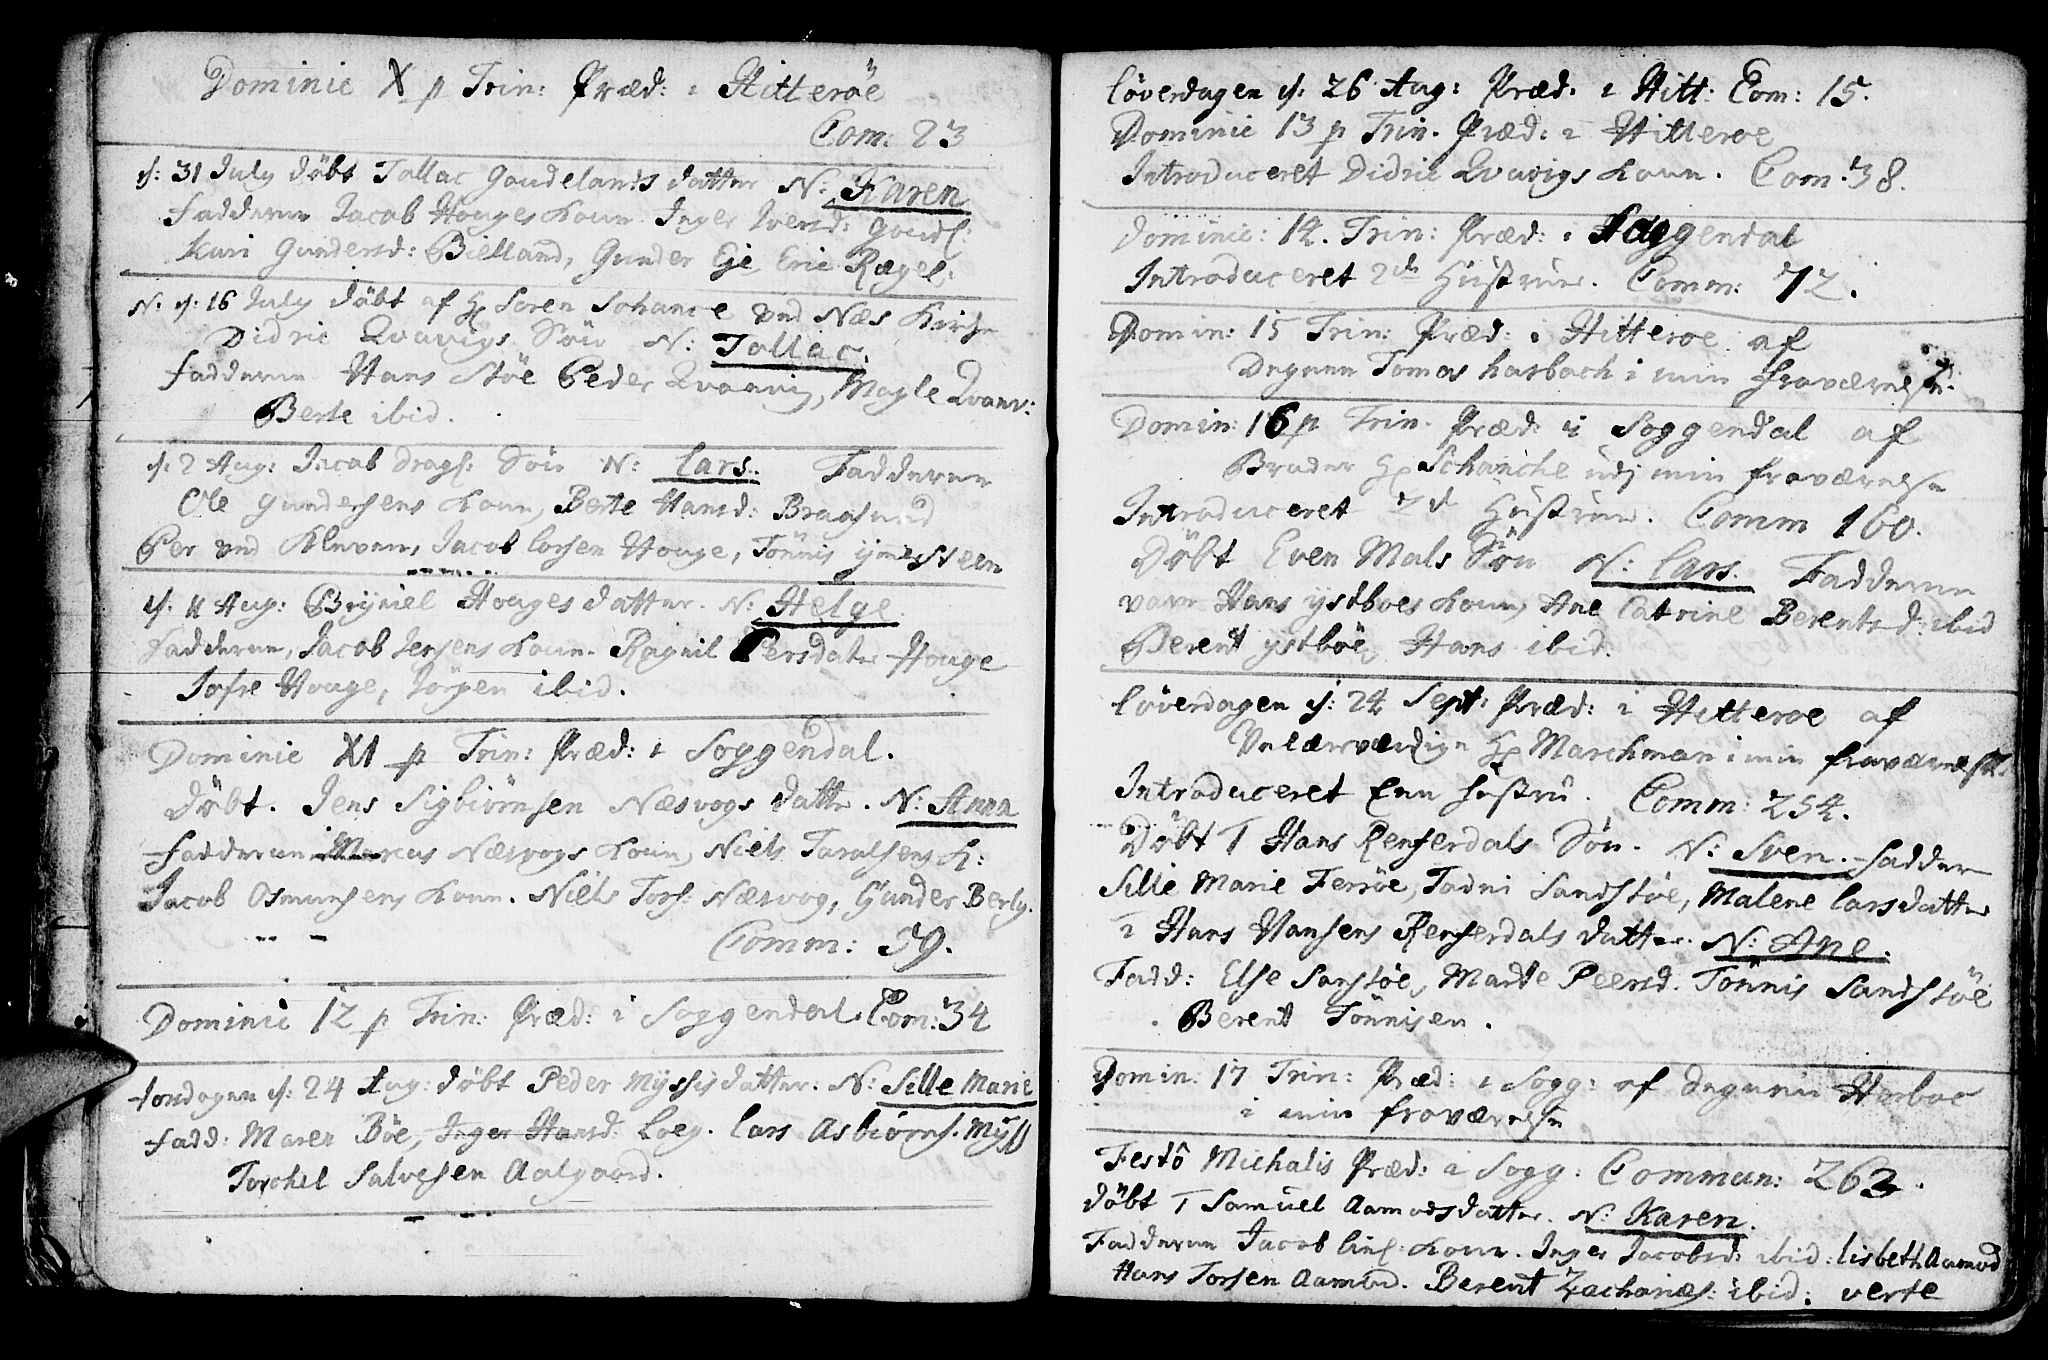 Dominic X p Trin: Præd: i Hitteröe
Com: 23
d: 31 July döbt Tallac Gaudelands datter N: Karen
Fadderne Jacob Houges Koune Inger Iversd: Gaudl:
Kari Gundersd: Bielland, Gunder Eje Eric Rægel.
N. d: 16 July döbt af Hr Søren Schance ved Næs Kirche
Didric Qvavigs Sön N: Tallac.
Fadderne Hans Stöe Peder Qvaavig, Magle Qvaav:
Berte ibid.
d: 2 Aug: Jacob Dragsl: Sön N: Lars. Fadderne
Ole Gundersens Koune, Berte Hansd: Bragsund
Per ved Kleven, Jacob Corsen Houge, Tönnis Steen
d. 11 Aug: Bryniel Houges datter. N: Helge
Fadderne, Jacob Jensens Koune. Ragnil Persdater Houge
Jofre Houge, Jörgen ibid.
Dominic XI p Trin: Præd: i Soggendal.
Döbt. Jens Sigbiörnsen Næsvogs datter. N: Anna
Fadderne Marcus Næsvogs Koune, Niels Taralsens K:
Jacob Osmunsens Koune. Niels Tors: Næsvog, Gunder Berly.
Comm: 59.
Dominic 12 p Trin: Præd: i Soggendal. Com: 34
Torsdagen d: 24 Aug: döbt Peder Myssis datter. N: Sille Marie
Fadd: Maren Böe, Inger Hansd: Loeg. Lars Asbiörns. Myss
Torchel Salvesen Aalgaard.
Löverdagen d: 26 Aug: Præd: i Hitt: Com: 15.
Dominic 13 p Trin. Præd: i Hitteroe
Introduceret Didric Qvavigs Koune. Com: 38.
Dominic: 14. Trin: Præd: i Saggendal
Introduceret 2de Hustruer. Comm: 72.
Domin: 15 Trin: Præd: i Hitteroe af
Degnen Tomas Harbach i min fraværelse.
Domin: 16 p Trin. Præd: i Soggendal af
Broder Hr Schanche udj min fraværelse
Introduceret 7 d Hustruer. Comm 160.
Döbt Even Mals Sön N: Lars. Fadderne
vare Hans Ystboes Koune, Ane Catrine Berentsd: ibid
Berent Ystböe, Hans ibid.
Löverdagen d: 24 Sept: Præd: i Hitteroe af
Velærværdige Hr Marchman i min fraværelse.
Introduceret Een Hustru. Comm: 254.
Döbt 1 Hans Renserdals Sön. N: Sven. Fadder
Sille Marie Ferröe, Tadni Sandstöe, Malene Larsdatter
2 Hans Hansens Renserdals datter. N: Ane.
Fadd: Else Sanstöe, Marte Peersd. Tönnis Sandstöe
Berent Tönnisen.
Domin: 17 Trin: Præd: i Sogg: af Degnen Harboe
i min fraværelse
Festo Michalis Præd: i Sogg: Commun: 263.
Döbt 1 Samuel Aamods datter. N: Karen.
Fadderne Jacob Koune. Inger Jacobsd: ibid: Lisbeth Aamod
Hans Torsen Aamod. Berent Zachariæs: ibid: verte